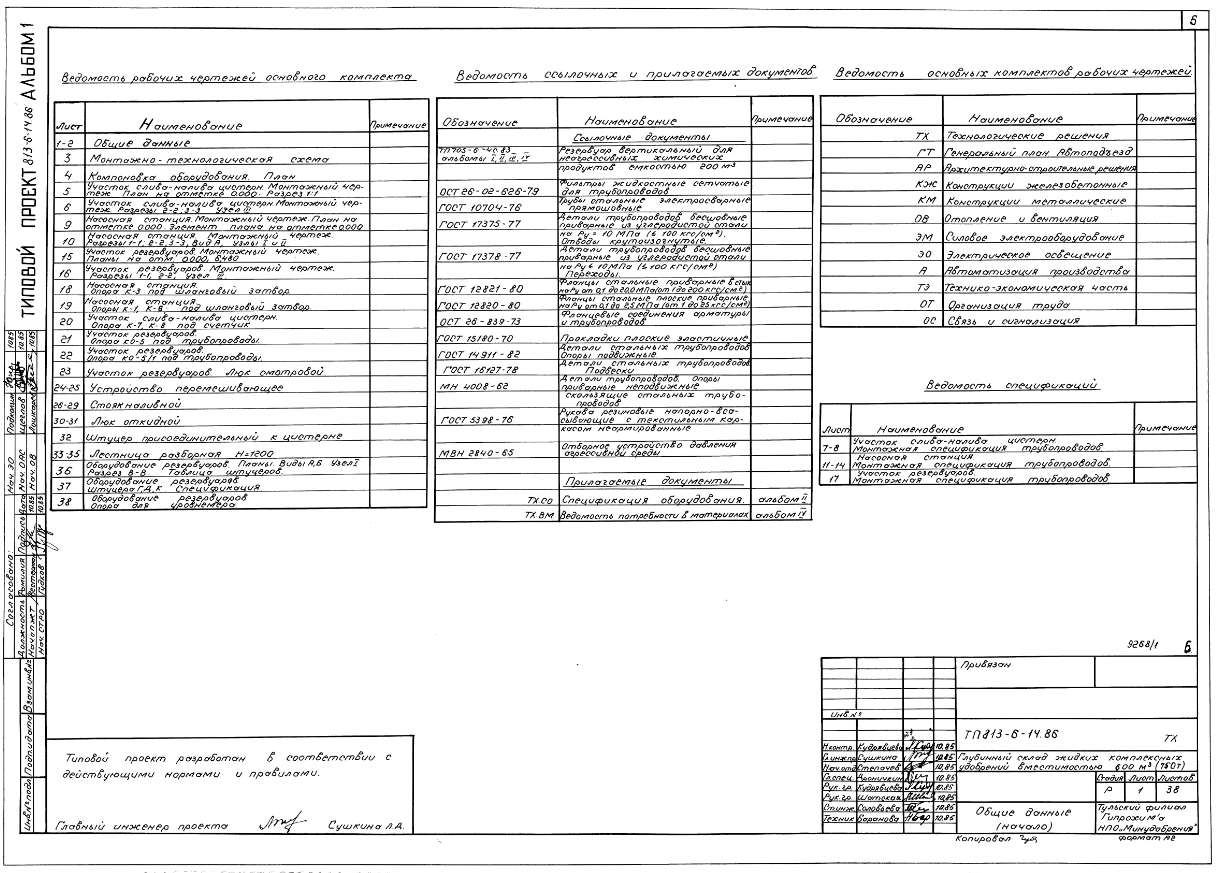 5
ТИПОВОЙ ПРОЕКТ 813-6-14.86 АЛЬБОМ 1
Ведомость рабочих чертежей основного комплекта
Лист Наименование Примечание
1-2 Общие данные
3 Монтажно-технологическая схема
4 Компоновка оборудования. План
5 Участок слива-налива цистерн. Монтажный чер-
теж. План на отметке 0.000. Разрез 1-1
6 Участок слива-налива цистерн. Монтажный чер-
теж. Разрезы 2-2, 3-3 Узел III
9 Насосная станция. Монтажный чертеж. План на
отметке 0.000 Элемент плана на отметке 0.000
10 Насосная станция. Монтажный чертеж.
Разрезы 1-1, 2-2, 3-3, Вид А, Узлы I и II
15 Участок резервуаров Монтажный чертеж.
Планы на отм. 0.000, 6.480
16 Участок резервуаров. Монтажный чертеж.
Разрезы 1-1, 2-2, Узел III.
18 Насосная станция.
Опора К-3 под шланговый затвор
19 Насосная станция.
Опоры К-1, К-6 под шланговый затвор.
20 Участок слива-налива цистерн.
Опора К-7, К-8 под счетчик
21 Участок резервуаров.
Опора КО-5 под трубопроводы.
22 Участок резервуаров.
Опора КО-5/1 под трубопроводы.
23 Участок резервуаров. Люк смотровой.
24-25 Устройство перемешивающее
26-29 Стояк наливной
30-31 Люк откидной
32 Штуцер присоединительный к цистерне
33-35 Лестница разборная H=1200
36 Оборудование резервуаров. Планы. Виды А,Б Узел I
Разрез В-В. Таблица штуцеров.
37 Оборудование резервуаров
штуцера Г,Д,К Спецификация.
38 Оборудование резервуаров
Опора для уровнемера
Ведомость ссылочных и прилагаемых документов
Обозначение Наименование Примечание
Ссылочные документы
ТП 705-6-40.83 Резервуар вертикальный для
альбомы I, II, III, IV неагрессивных химических
продуктов емкостью 200 м³
ОСТ 26-02-626-79 Фильтры жидкостные сетчатые
для трубопроводов
ГОСТ 10704-76 Трубы стальные электросварные
прямошовные
ГОСТ 17375-77 Детали трубопроводов бесшовные
приварные из углеродистой стали
на Ру = 10 МПа (≤ 100 кгс/см²).
Отводы крутоизогнутые.
ГОСТ 17378-77 Детали трубопроводов бесшовные
приварные из углеродистой стали
на Ру ≤ 10 МПа (≤ 100 кгс/см²)
Переходы.
ГОСТ 12821-80 Фланцы стальные приварные встык
на Ру от 0,1 до 20,0 МПа (от 1 до 200 кгс/см²)
ГОСТ 12820-80 Фланцы стальные плоские приварные
на Ру от 0,1 до 2,5 МПа (от 1 до 25 кгс/см²)
ОСТ 26-839-73 Фланцевые соединения арматуры
и трубопроводов
ГОСТ 15180-70 Прокладки плоские эластичные
ГОСТ 14911-82 Детали стальных трубопроводов
Опоры подвижные
ГОСТ 16127-78 Детали стальных трубопроводов
Подвески
МН 4008-62 Детали трубопроводов. Опоры
приварные неподвижные
скользящие стальных трубо-
проводов
ГОСТ 5398-76 Рукава резиновые напорно-вса-
сывающие с текстильным кар-
касом неармированные
МВН 2840-65 Отборное устройство давления
агрессивной среды
Прилагаемые документы
ТХ.СО Спецификация оборудования. альбом II
ТХ.ВМ Ведомость потребности в материалах альбом IV
Ведомость основных комплектов рабочих чертежей.
Обозначение Наименование Примечание
ТХ Технологические решения
ГТ Генеральный план Автоподъезд
АР Архитектурно-строительные решения
КЖ Конструкции железобетонные
КМ Конструкции металлические
ОВ Отопление и вентиляция
ЭМ Силовое электрооборудование
ЭО Электрическое освещение
А Автоматизация производства
ТЭ Технико-экономическая часть
ОТ Организация труда
ОС Связь и сигнализация
Ведомость спецификаций
Лист Наименование Примечание
7-8 Участок слива-налива цистерн.
Монтажная спецификация трубопроводов.
11-14 Насосная станция
Монтажная спецификация трубопроводов.
17 Участок резервуаров.
Монтажная спецификация трубопроводов.
Согласовано:
Должность Фамилия Подпись Дата
Нач. ОПС Щеглов 10.85
Нач. ОВ 10.85
Нач. ЭО 10.85
Нач. СТРО Годков 10.85
Взам.инв.№
Подп. и дата
Инв.№ подл.
Типовой проект разработан в соответствии с
действующими нормами и правилами.
Главный инженер проекта Сушкина Л.А.
9268/1 6
Привязан
Инв.№
ТП 813-6-14.86 ТХ
Н.контр. Кудрявцева 10.85
Гл.инж.пр. Сушкина 10.85
Нач.отд. Степачев 10.85
Гл.спец. 10.85
Рук.гр. Кудрявцева 10.85
Рук.гр. Шатская 10.85
Ст.инж. Соловьева 10.85
Техник Баранова 10.85
Глубинный склад жидких комплексных
удобрений вместимостью 600 м³ (750т)
Стадия Лист Листов
Р 1 38
Общие данные
(начало)
Тульский филиал
Гипрохим'а
НПО „Минудобрения"
Копировал формат А2